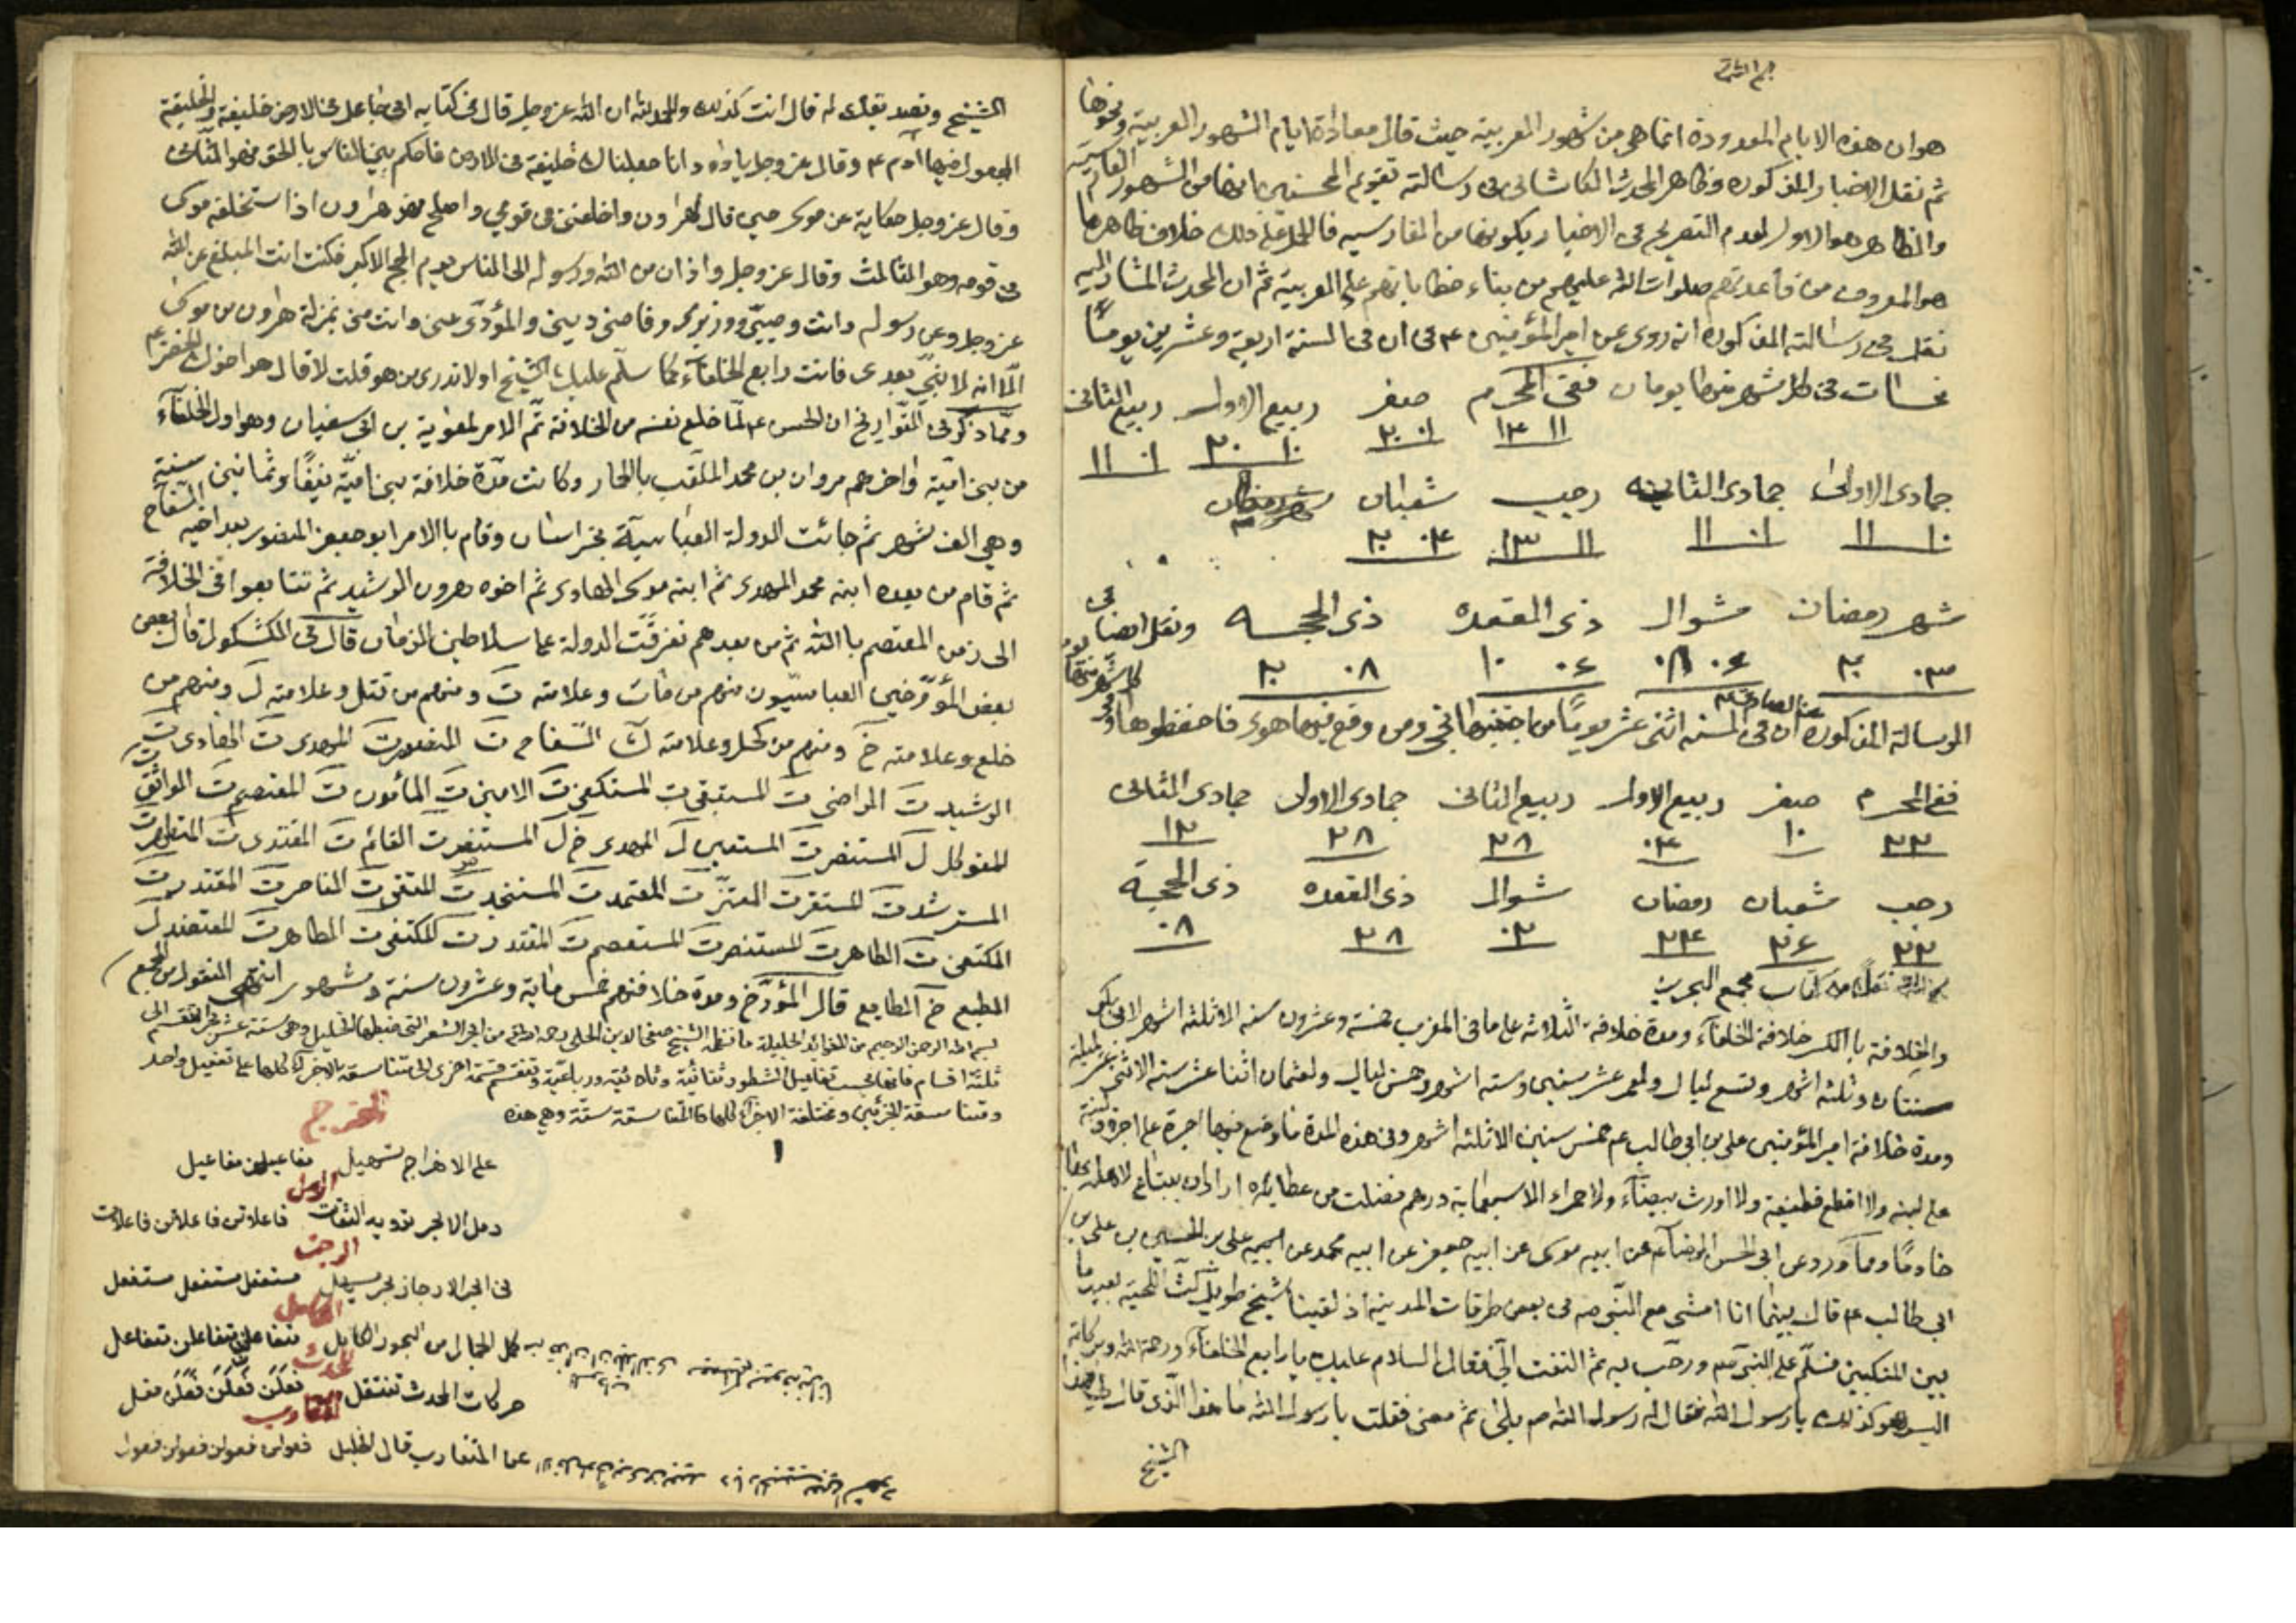 هو ان هذه الايام المعدودة انما هي من شهور العربية حيث قال معاداة ايام الشهور العربية ونحوها
ثم نقل الاخبار المذكوره وظاهر المحدث الكاشاني في رسالته تقويم المحسنين انها من الشهور الفارسية
والظاهر هو الاول لعدم التصريح في الاخبار بكونها من الفارسيه فالحمل على ذلك خلاف ظاهرها
هو المعروف من قاعدتهم صلوات الله عليهم من بناء خطاباتهم على العربية ثم ان المحدث المشار اليه
نقل في رسالته المذكوره انه روى عن امير المؤمنين ع م ان في السنة اربعة وعشرين يومًا
نحسات في كل شهر منها يومان ففى المحرم صفر ربيع الاول ربيع الثاني
١١ ١٤ ٠١ ٢٠ ١٠ ٢٠ ٠١ ١١
جمادى الاولى جمادى الثانيه رجب شعبان
١٠ ١١ ٠١ ١١ ١١ ١٣ ٠٤ ٢٠
شهر رمضان شوال ذى القعده ذى الحجه ونقل ايضا في
٠٣ ٢٠ ٠٦ ٠٨ ٠٦ ١٠ ٠٨ ٢٠
الرسالة المذكوره عن الصادق ع م ان في السنه اثنى عشر يومًا من اجتنبها نجى ومن وقع فيها هوى فاحفظوها
ففي المحرم صفر ربيع الاول ربيع الثاني جمادى الاولى جمادى الثاني
٢٢ ١٠ ٠٤ ٢٨ ٢٨ ١٢
رجب شعبان رمضان شوال ذى القعده ذى الحجية
٢٢ ٢٦ ٢٤ ٠٢ ٢٨ ٠٨
نقلاً من كتاب مجمع البحرين
والخلافة بالكسر خلافة الخلفاء ومدة خلافة الثلاثه على ما فى المغرب خمسة وعشرون سنه الا ثلثه اشهر لابي بكر
سنتان وثلثه اشهر وتسع ليال ولعمر عشر سنين وسته اشهر وخمس ليال ولعثمان اثنا عشر سنه الا اثنى عشر ليلة
ومدة خلافة امير المؤمنين على بن ابي طالب ع م خمس سنين الا ثلثه اشهر وفي هذه المدة ما وضع فيها اجرة على اجرة
على لبنه ولا اقطع قطيعة ولا اورث بيضاء ولا حمراء الا سبعماية درهم فضلت من عطاياه اراد ان يبتاع لاهله بها
خادمًا ومما ورد عن ابى الحسن الرضا ع م عن ابيه موسى عن ابيه جعفر عن ابيه محمد عن ابيه على بن الحسين بن على بن
ابي طالب ع م قال بينما انا امشى مع النبى ص في بعض طرقات المدينة اذ لقينا شيخ طويل كث اللحية بعيد ما
بين المنكبين فسلم على النبي ص ورحب به ثم التفت الى فقال السلام عليك يا رابع الخلفاء ورحمة الله وبركاته
اليس هو كذلك يا رسول الله فقال له رسول الله ص بلى ثم مضى فقلت يا رسول الله ما هذا الذى قال لي هذا
الشيخ
الشيخ وتصديقك له قال انت كذلك والحمد لله ان الله عز وجل قال في كتابه انى جاعل في الارض خليفة والخليفة
المجعول فيها آدم ع م وقال عز وجل يا داود انا جعلناك خليفة في الارض فاحكم بين الناس بالحق فهو الثاني
وقال عز وجل حكاية عن موسى حين قال لهارون واخلفني في قومي واصلح فهو هارون اذا استخلفه موسى
في قومه وهو الثالث وقال عز وجل واذان من الله ورسوله الى الناس يوم الحج الاكبر فكنت انت المبلغ عن الله
عز وجل وعن رسوله وانت وصيي ووزيري وقاضي ديني والمؤدى عني وانت مني بمنزلة هارون من موسى
الا انه لا نبي بعدى فانت رابع الخلفاء كما سلم عليك الشيخ اولا تدرى من هو قلت لا قال هو اخوك الخضر ع م
ومما ذكر في التواريخ ان الحسن ع م لما خلع نفسه من الخلافة تم الامر لمعوية بن ابى سفيان وهو اول الخلفاء
من بنى امية واخرهم مروان بن محمد الملقب بالحمار وكانت مدة خلافة بنى امية نيفًا وثمانين سنة
وهي الف شهر ثم جائت الدولة العباسية بخراسان وقام بالامر ابو جعفر المنصور بعد اخيه السفاح
ثم قام من بعده ابنه محمد المهدى ثم ابنه موسى الهادى ثم اخوه هرون الرشيد ثم تتابعوا في الخلافة
الى زمن المعتصم بالله ثم من بعدهم تفرقت الدولة عما سلاطين الزمان قال في الكشكول قال بعض
بعض المؤرخين العباسيون منهم من مات وعلامته ت ومنهم من قتل وعلامته ل ومنهم من
خلع وعلامته خ ومنهم من كحل وعلامته ك السفاح ت المنصور ت المهدى ت الهادى ت
الرشيد ت الراضى ت المتقى ت المستكفي ت الامين ت المأمون ت المعتصم ت الواثق ت
المتوكل ل المستنصر ت المستعين ل المهدى خ ل المستظهر ت القائم ت المقتدى ت
المسترشد ت المعتز ت المعتمد ت المستنجد ت المقتفى ت الناصر ت المقتدر ت
المكتفى ت الظاهر ت المستنصر ت المستعصم ت المقتدر ت المكتفى ت الطاهر ت المعتضد ل
المطيع خ الطايع قال المؤرخ ومدة خلافتهم خمس ماية وعشرون سنة وشهور انتهى المنقول من المجمع
بسم الله الرحمن الرحيم من الفوائد الجليلة ما نظمه الشيخ صفى الدين الحلى رحمه الله من ابحر الشعر التى ضبطها الخليل وهى ستة عشر بحرا تنقسم الى
ثلثة اقسام فانها بحسب تفاعيل الشطور ثنائية وثلاثية ورباعية وتنقسم قسمة اخرى الى متناسقة الاجزاء كلها على تفعيل واحد
ومتناسقة الجزئين ومختلفة الاجزاء كلها فالمتناسقة ستة وهي هذه
الهزج
على الاهزاج تسهيل مفاعيلن مفاعيل
الرمل
رمل الابحر ترويه الثقات فاعلاتن فاعلاتن فاعلات
الرجز
في ابحر الارجاز بحر يسهل مستفعلن مستفعلن مستفعل
الكامل
كمل الجمال من البحور الكامل متفاعلن متفاعلن متفاعل
المحدث
حركات المحدث تنتقل فعلن فعلن فعلن فعل
المتقارب
عن المتقارب قال الخليل فعولن فعولن فعولن فعول